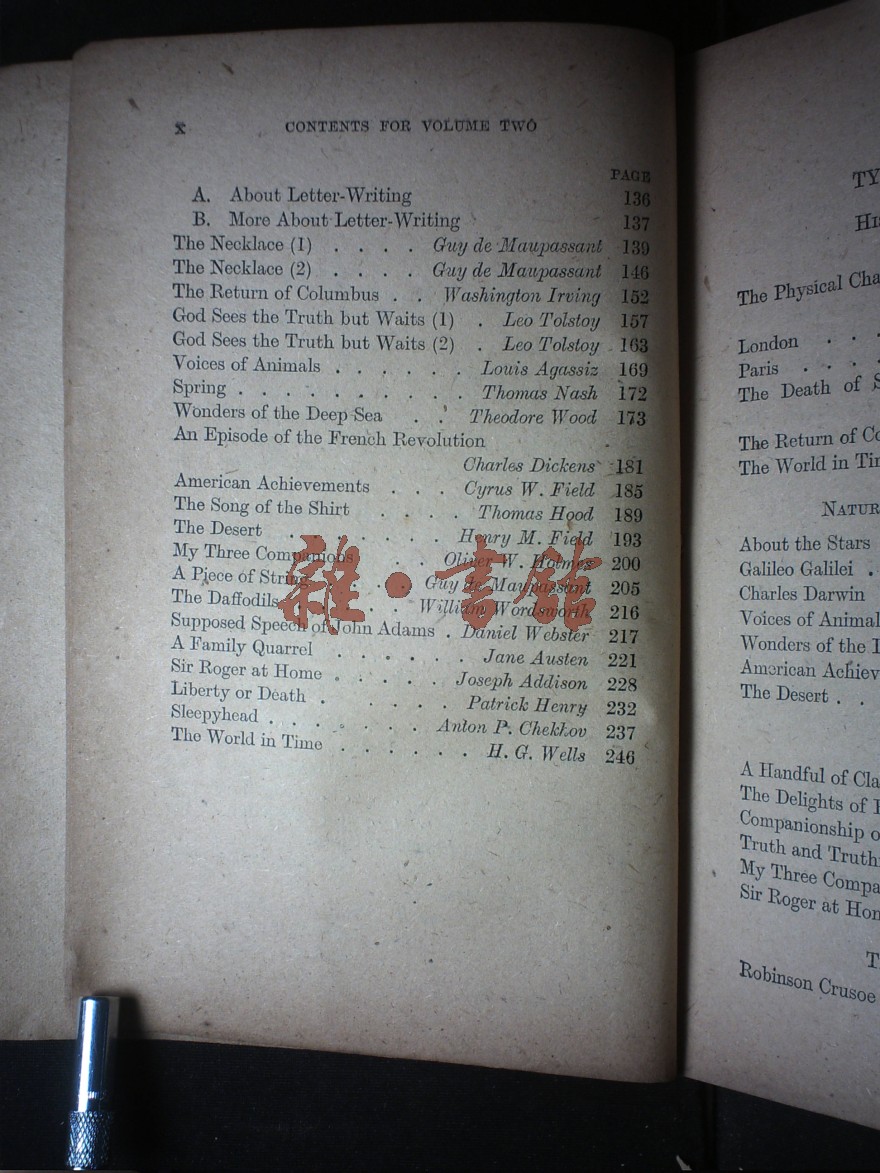 x CONTENTS FOR VOLUME TWO
PAGE
A. About Letter-Writing 136
B. More About Letter-Writing 137
The Necklace (1) . . . . Guy de Maupassant 139
The Necklace (2) . . . . Guy de Maupassant 146
The Return of Columbus . . Washington Irving 152
God Sees the Truth but Waits (1) . Leo Tolstoy 157
God Sees the Truth but Waits (2) . Leo Tolstoy 163
Voices of Animals . . . . . . Louis Agassiz 169
Spring . . . . . . . . . . Thomas Nash 172
Wonders of the Deep Sea . . Theodore Wood 173
An Episode of the French Revolution
Charles Dickens 181
American Achievements . . . Cyrus W. Field 185
The Song of the Shirt . . . . Thomas Hood 189
The Desert . . . . . . Henry M. Field 193
My Three Companions . . . Oliver W. Holmes 200
A Piece of String . . . . Guy de Maupassant 205
The Daffodils . . . . . William Wordsworth 216
Supposed Speech of John Adams . Daniel Webster 217
A Family Quarrel . . . . . . Jane Austen 221
Sir Roger at Home . . . . . Joseph Addison 228
Liberty or Death . . . . . Patrick Henry 232
Sleepyhead . . . . . . . Anton P. Chekhov 237
The World in Time . . . . . . H. G. Wells 246
雜·書館
The Physical
London . . .
Paris . . . .
The Death of
The Return of
The World in
About the Stars
Galileo Galilei .
Charles Darwin
Voices of
Wonders of the
American
The Desert . .
A Handful of
The Delights of
Companionship
Truth and
My Three
Sir Roger at
Robinson Crusoe